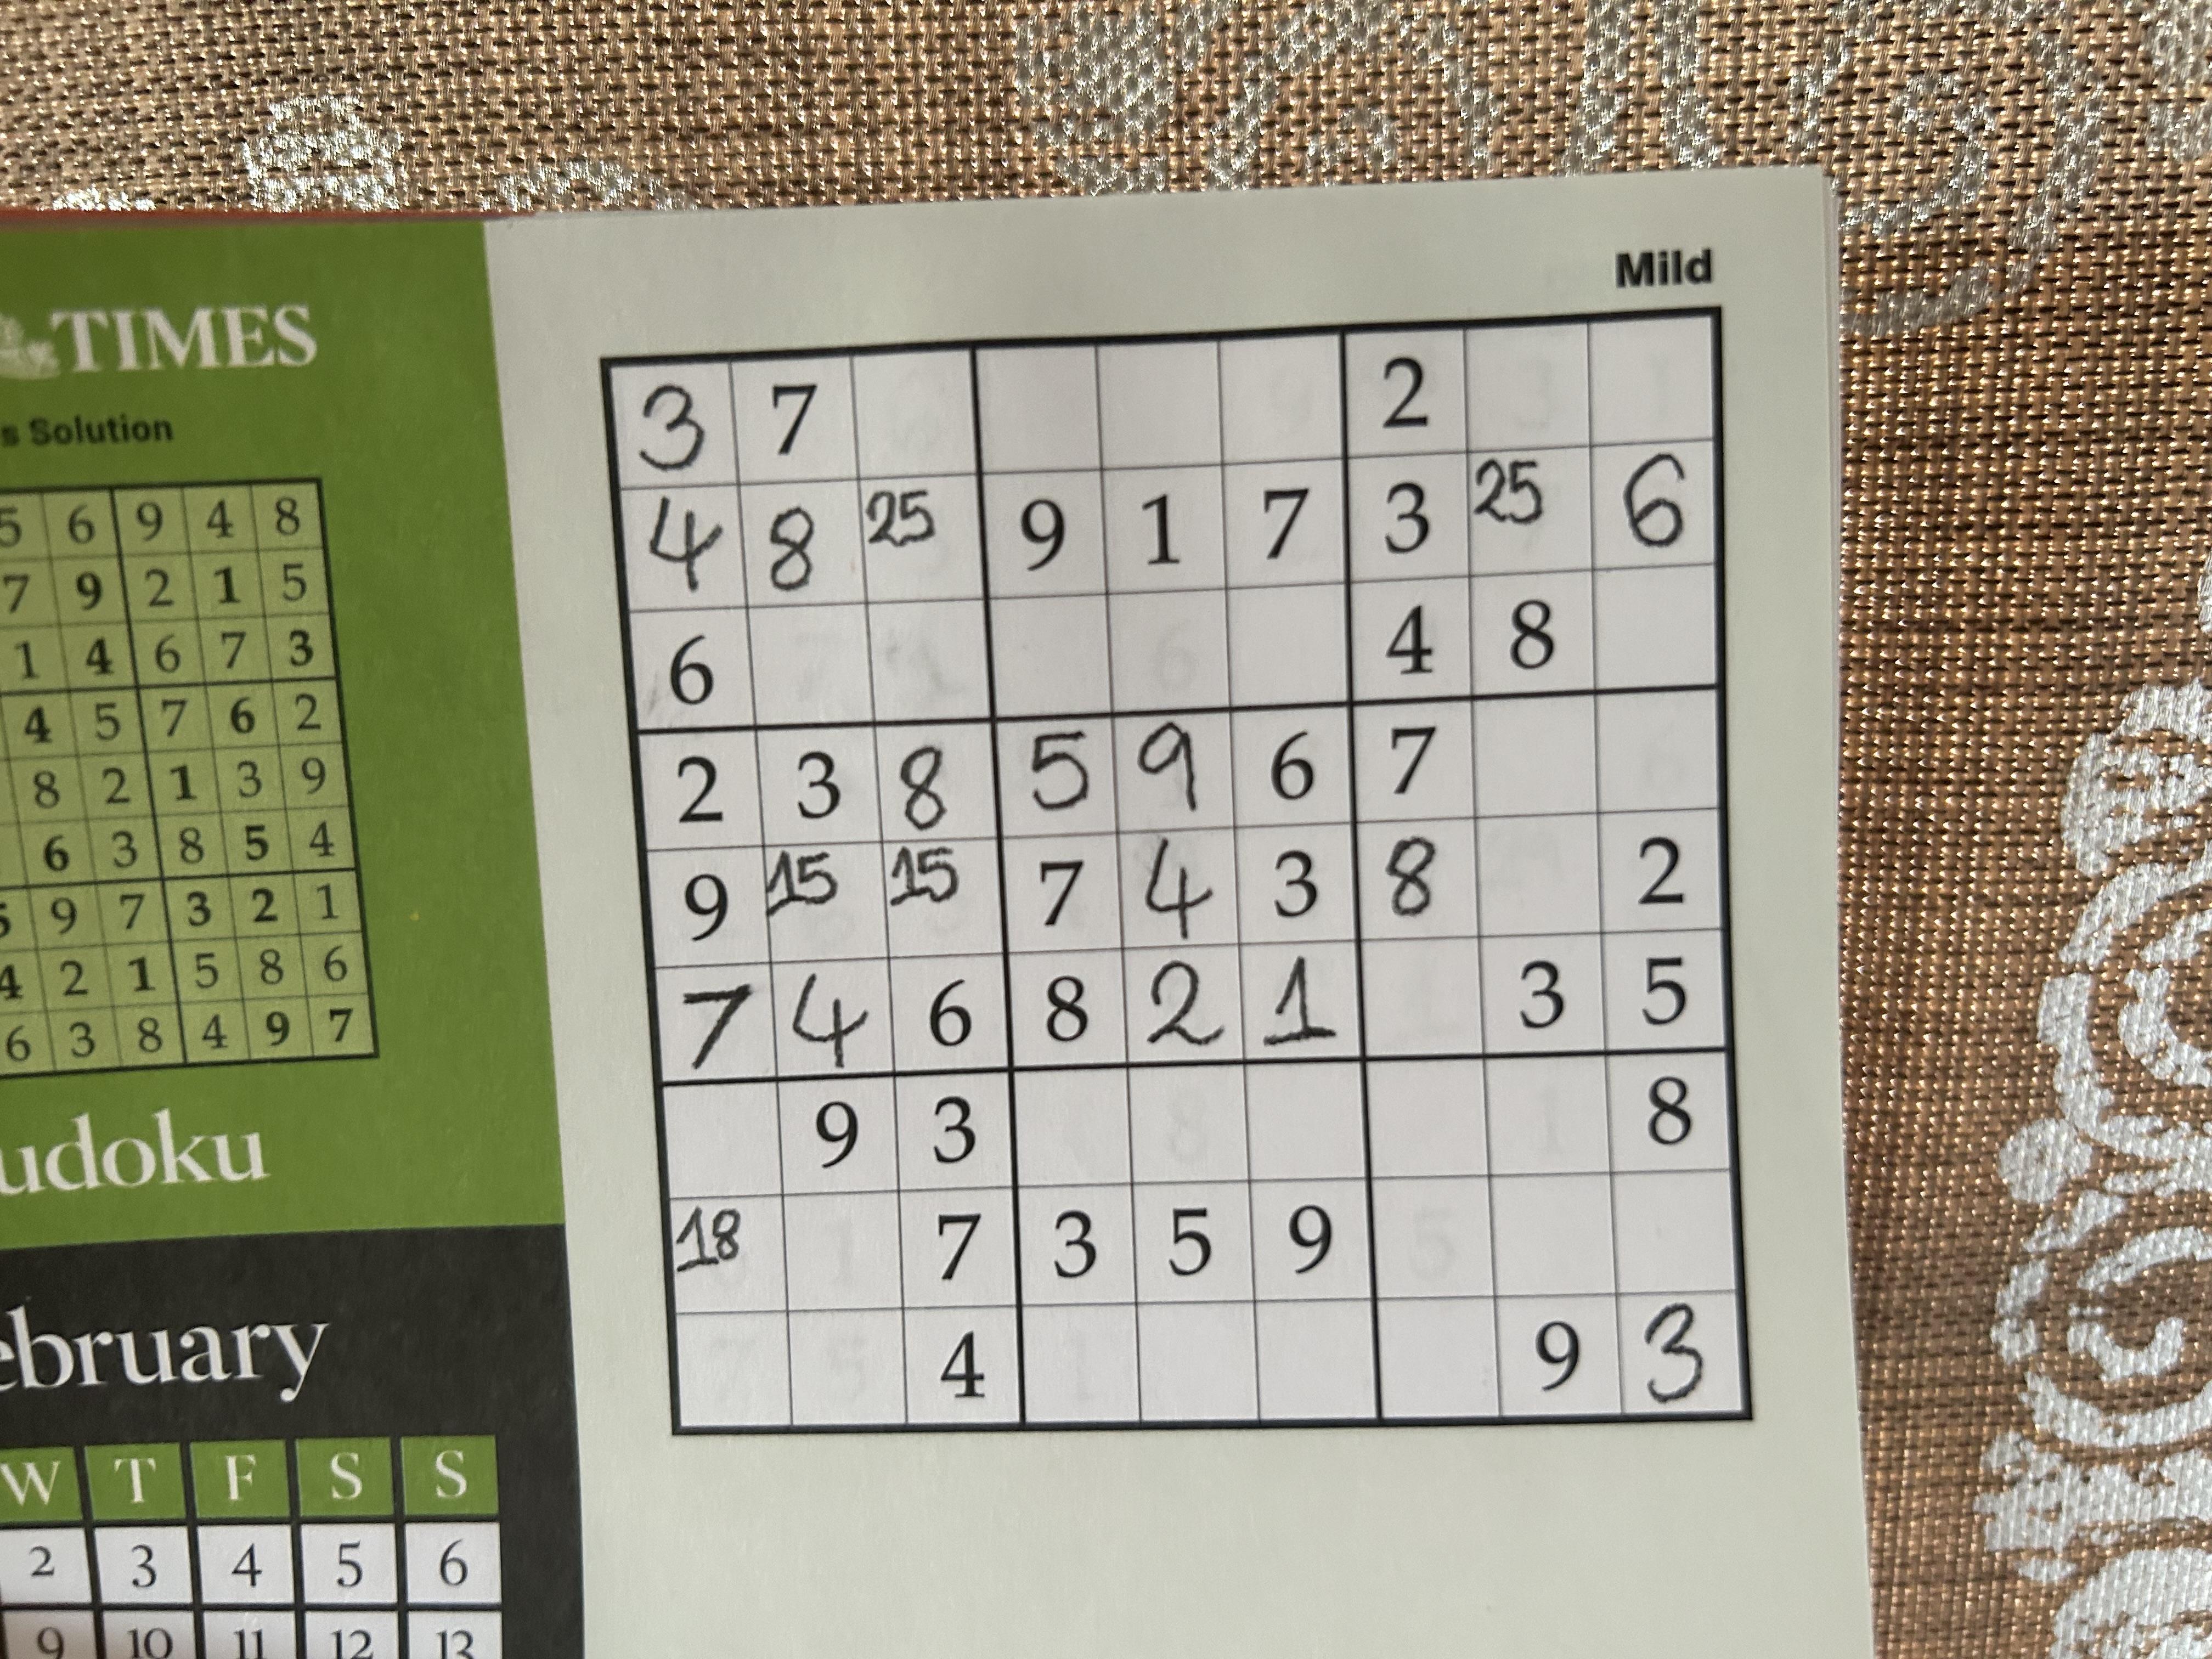 Mild
TIMES
s Solution
5 6 9 4 8
7 9 2 1 5
1 4 6 7 3
4 5 7 6 2
8 2 1 3 9
6 3 8 5 4
5 9 7 3 2 1
4 2 1 5 8 6
6 3 8 4 9 7
udoku
ebruary
W T F S S
2 3 4 5 6
9 10 11 12 13
3 7 2
4 8 25 9 1 7 3 25 6
6 4 8
2 3 8 5 9 6 7
9 15 15 7 4 3 8 2
7 4 6 8 2 1 3 5
9 3 8
18 7 3 5 9
4 9 3